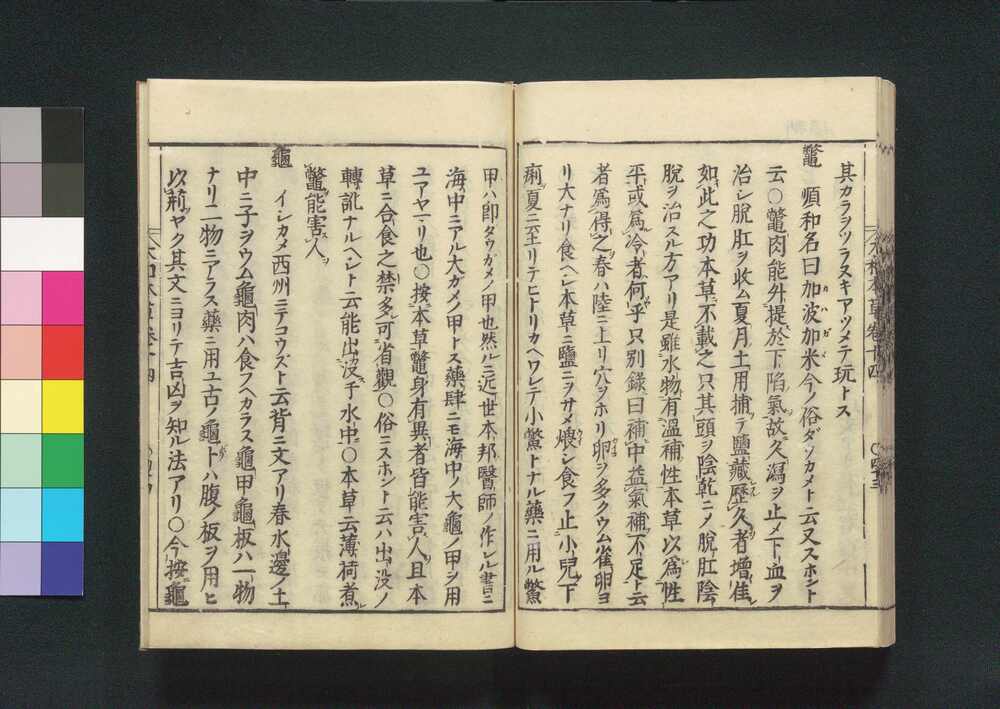 其カラヲツラヌキアツメテ玩トス
鼈
順和名曰加波加米今ノ俗ダゾカメト云又スホント
云〇鼈肉能升提於下陷氣故久瀉ヲ止メ下血ヲ
治シ脱肛ヲ收ム夏月土用捕テ鹽藏歷久者增佳
如此之功本草不載之只其頭ヲ陰乾ニメ脱肛陰
脱ヲ治スル方アリ是雖水物有溫補性本草以爲性
平或爲冷者何乎只別錄曰補中益氣補不足ト云
者爲得之春ハ陸ニ上リ穴ヲホリ卵ヲ多クウム雀卵ヨ
リ大ナリ食ヘシ本草ニ鹽ニヲサメ煨シ食フ止小兒下
痢夏ニ至リテヒトリカヘワレテ小鱉トナル藥ニ用ル鱉
大和本草卷十四
〇四三
甲ハ卽タウガメノ甲也然ルニ近世本邦醫師ノ作レル書ニ
海中ニアル大ガメノ甲トス藥肆ニモ海中ノ大龜ノ甲ヲ用
ユアヤマリ也〇按本草鼈身有異者皆能害人且本
草ニ合食之禁多可省觀〇俗ニスホント云ハ出没ノ
轉訛ナルヘシト云能出没于水中〇本草云薄荷煮
鼈能害人
龜
イシカメ西州ニテコウズト云背ニ文アリ春水邊ノ土
中ニ子ヲウム龜肉ハ食フヘカラス龜甲龜板ハ一物
ナリ二物ニアラス藥ニ用ユ古ノ龜トハ腹ノ板ヲ用ヒ
以荊ヤク其文ニヨリテ吉凶ヲ知ル法アリ〇今按龜